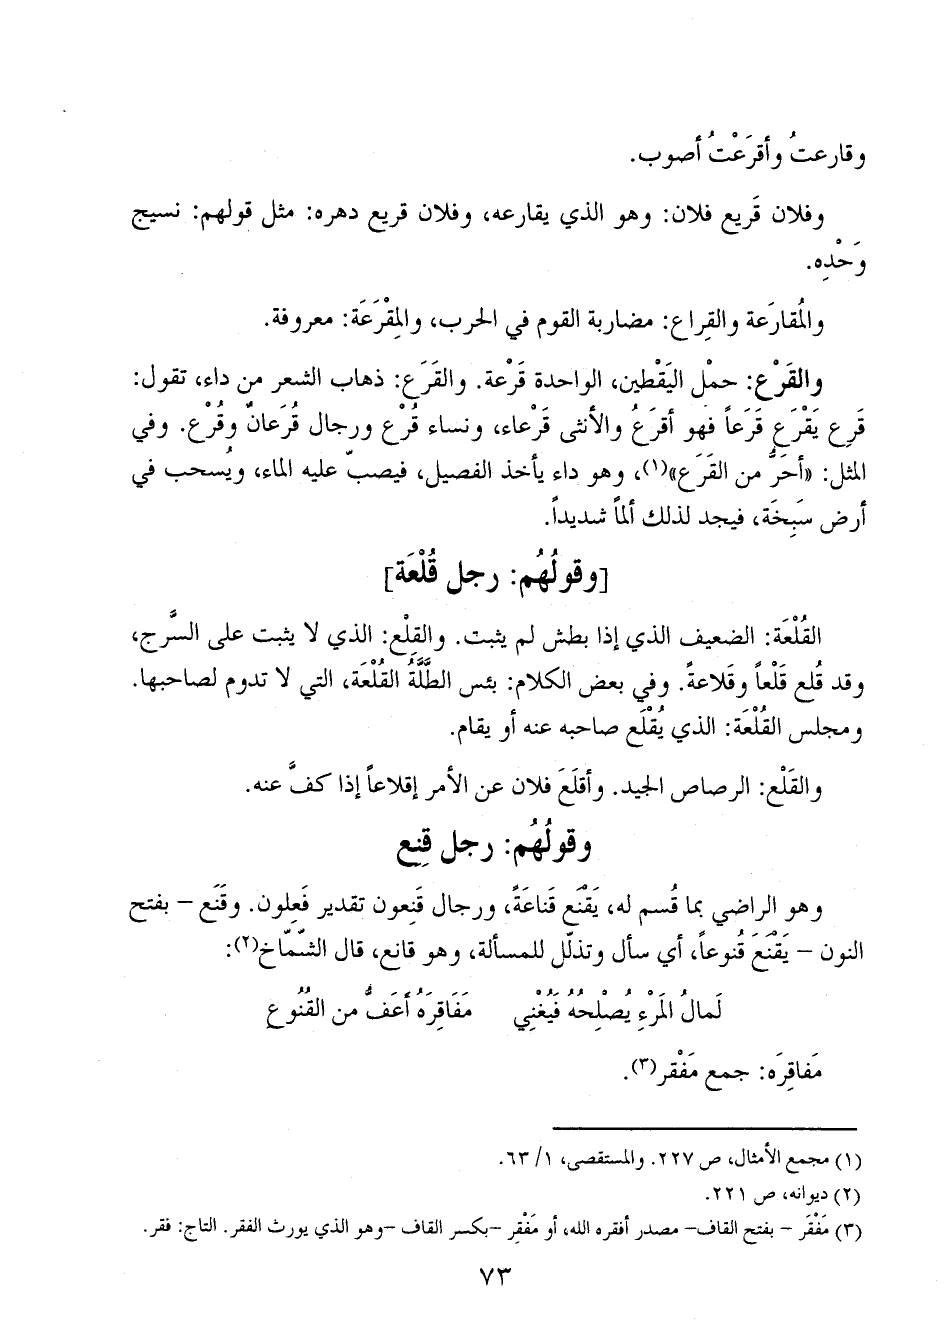 وقارعتُ وأقرَعْتُ أصوب.
وفلان قَريع فلان: وهو الذي يقارعه، وفلان قريع دهره: مثل قولهم: نسيج
وَحْدِه.
والمُقارَعة والقِراع: مضاربة القوم في الحرب، والمِقْرَعَة: معروفة.
والقَرْع: حمْل اليَقْطين، الواحدة قَرْعة. والقَرَع: ذهاب الشعر من داء، تقول:
قَرِع يَقْرَع قَرَعاً فهو أقرَعُ والأنثى قَرْعاء، ونساء قُرْع ورجال قُرَعانٌ وقُرْع. وفي
المثل: «أحَرُّ من القَرَع»(١)، وهو داء يأخذ الفصيل، فيصبّ عليه الماء، ويُسحب في
أرض سَبِخَة، فيجد لذلك ألماً شديداً.
[وقولُهُم: رجل قُلْعَة]
القُلْعَة: الضعيف الذي إذا بطش لم يثبت. والقِلْع: الذي لا يثبت على السَّرج،
وقد قُلع قَلْعاً وقَلاعةً. وفي بعض الكلام: بئس الطَّلَّةُ القُلْعَة، التي لا تدوم لصاحبها.
ومجلس القُلْعَة: الذي يُقْلَع صاحبه عنه أو يقام.
والقَلْع: الرصاص الجيد. وأقلَعَ فلان عن الأمر إقلاعاً إذا كفَّ عنه.
وقولُهُم: رجل قَنِع
وهو الراضي بما قُسم له، يَقْنَع قَناعَةً، ورجال قَنِعون تقدير فَعِلون. وقَنَع – بفتح
النون – يَقْنَعَ قُنوعاً، أي سأل وتذلّل للمسألة، وهو قانع، قال الشّمّاخ(٢):
لَمالُ المَرْءِ يُصْلِحُهُ فَيُغْنِي مَفَاقِرَهُ أعَفُّ من القُنُوعِ
مَفاقِرَه: جمع مَفْقر(٣).
(١) مجمع الأمثال، ص ٢٢٧. والمستقصى، ١/ ٦٣.
(٢) ديوانه، ص ٢٢١.
(٣) مَفْقَر – بفتح القاف– مصدر أفقره الله، أو مَفْقِر –بكسر القاف –وهو الذي يورث الفقر. التاج: فقر.
٧٣